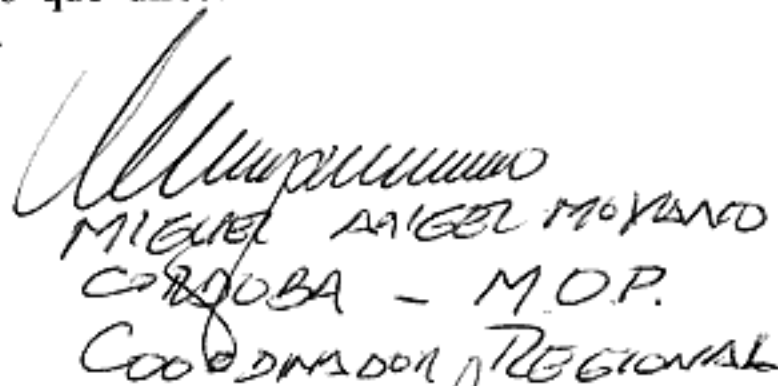 que
MIGUEL ANGEL MOYANO
CORDOBA - M.O.P.
COORDINADOR REGIONAL